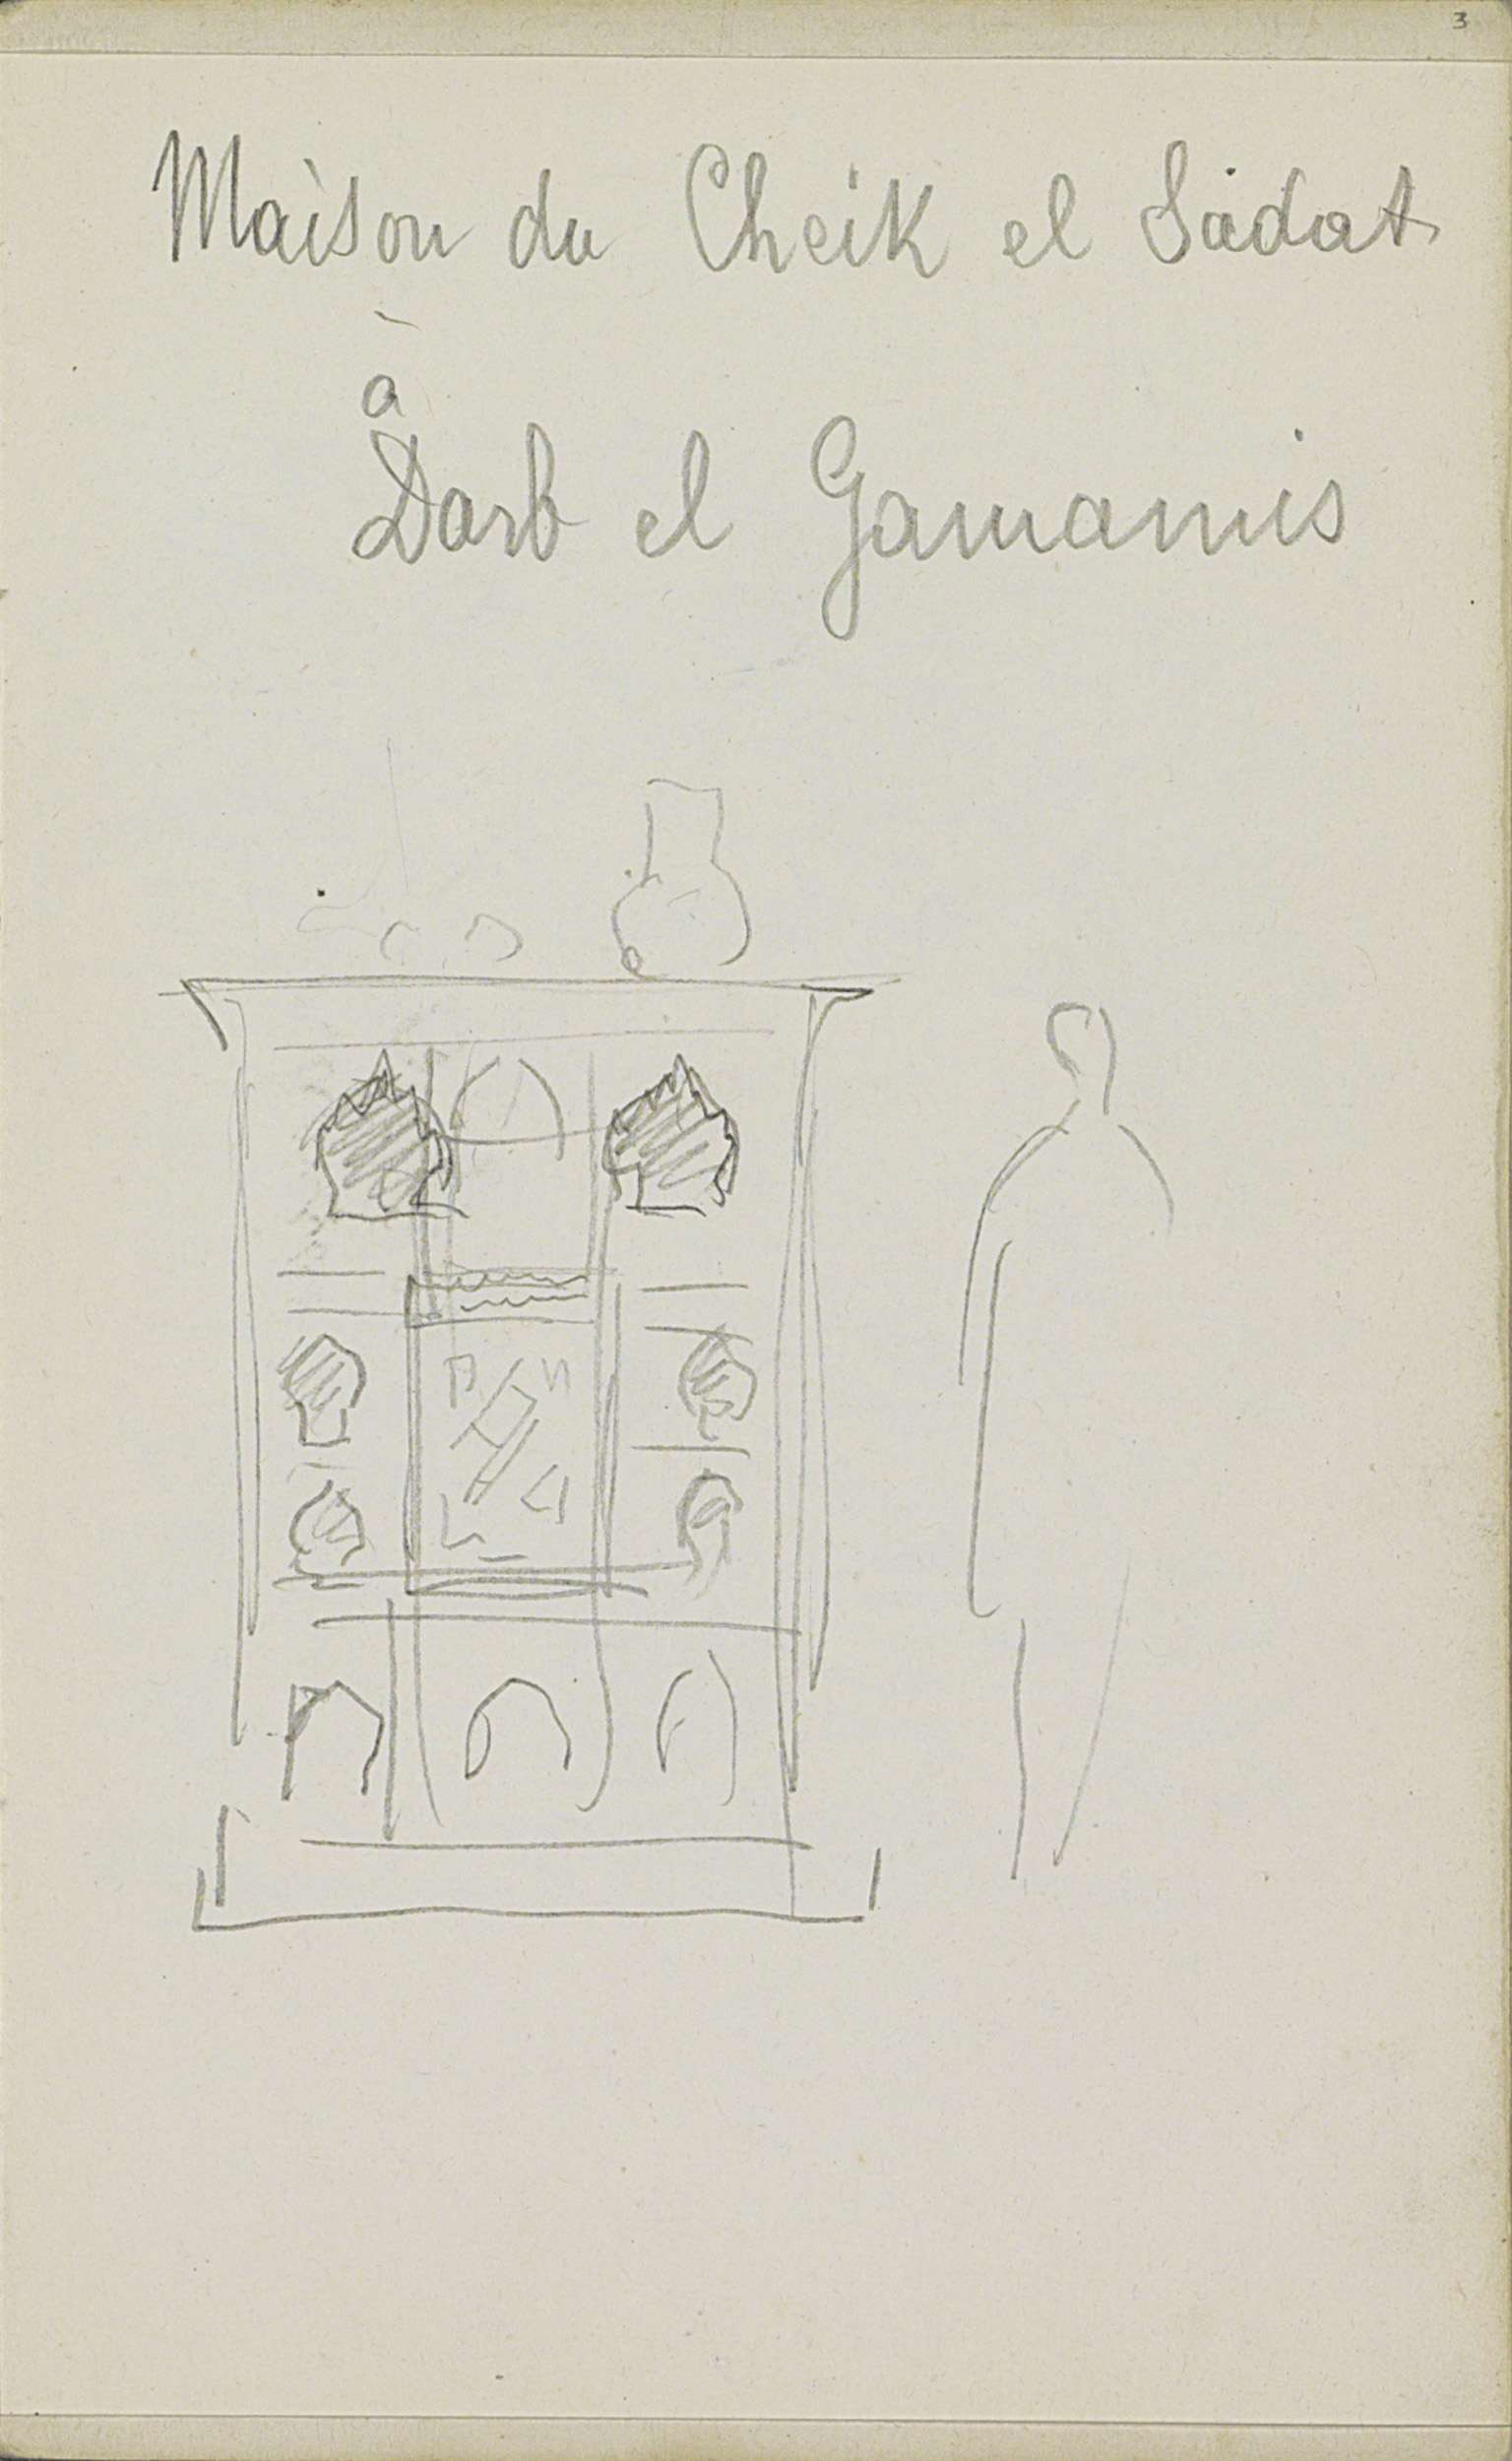 3
Maison du Cheik el Sadat
à
Darb el Gamamis